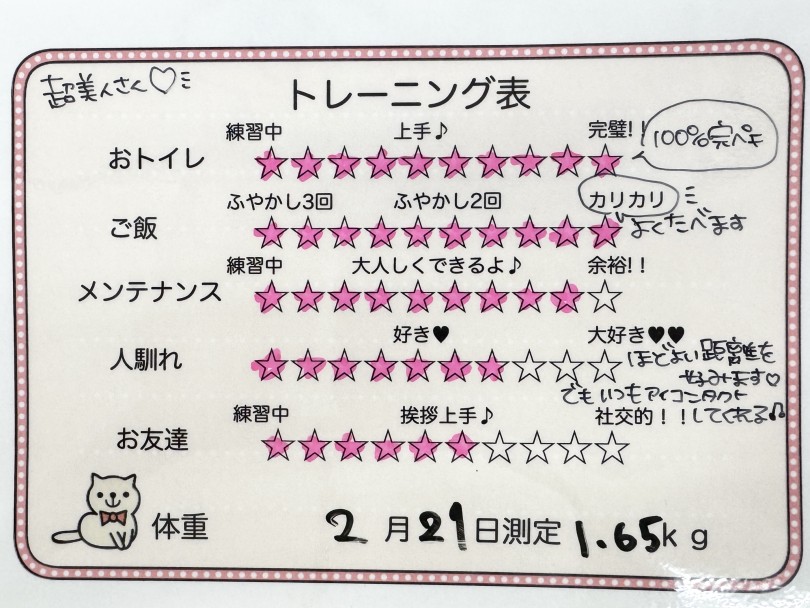 超美人さん♡
トレーニング表
練習中 上手♪ 完璧!!
100%完ペキ
おトイレ ★★★★★★★★★★
ふやかし3回 ふやかし2回 カリカリ
よくたべます
ご飯 ★★★★★★★★★★
練習中 大人しくできるよ♪ 余裕!!
メンテナンス ★★★★★★★★★☆
好き♥ 大好き♥♥
ほどよい距離を
好みます♡
人馴れ ★★★★★★★☆☆☆
でもいつもアイコンタクト
してくれる♫
練習中 挨拶上手♪ 社交的!!
お友達 ★★★★★★☆☆☆☆
体重 2月21日測定 1.65kg